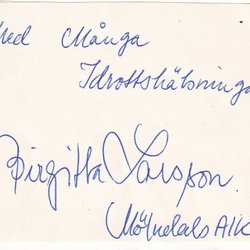 Med Många
Idrottshälsninga
Birgitta Larsson
Mölndals AIK